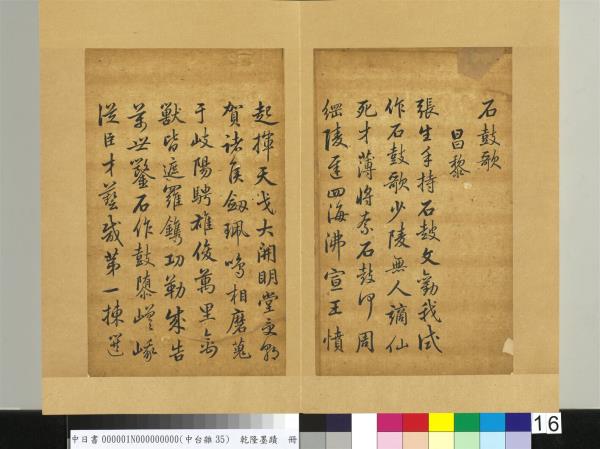 石鼓歌
昌黎
張生手持石鼓文勸我試
作石鼓歌少陵無人謫仙
死才薄將奈石鼓何周
綱陵遲四海沸宣王憤
起揮天戈大開明堂受朝
賀諸侯劍珮鳴相磨蒐
于岐陽騁雄俊萬里禽
獸皆遮羅鐫功勒成告
萬世鑿石作鼓隳嵯峨
從臣才藝咸第一揀選
中日書000001N000000000(中台雜35) 乾隆墨蹟 冊
16